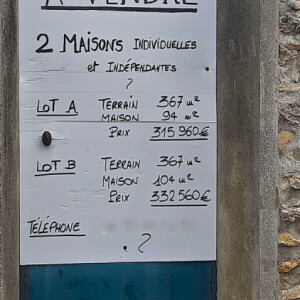 A VENDRE
2 MAISONS INDIVIDUELLES
et INDÉPENDANTES
?
LOT A TERRAIN 367 m²
MAISON 94 m²
PRIX 315 960 €
LOT B TERRAIN 367 m²
MAISON 104 m²
PRIX 332 560 €
TÉLÉPHONE
. ?